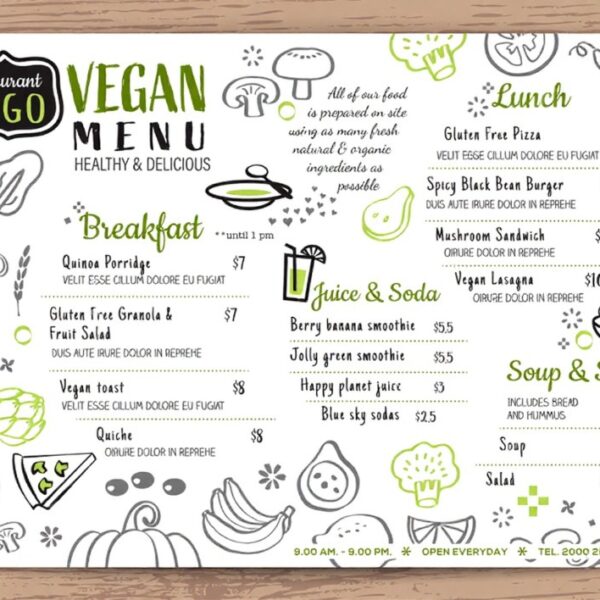 VEGAN
MENU
HEALTHY & DELICIOUS
All of our food
is prepared on site
using as many fresh
natural & organic
ingredients as
possible
Breakfast
**until 1 pm
Quinoa Porridge $7
VELIT ESSE CILLUM DOLORE EU FUGIAT
Gluten Free Granola & $7
Fruit Salad
DUIS AUTE IRURE DOLOR IN REPREHE
Vegan toast $8
VELIT ESSE CILLUM DOLORE EU FUGIAT
Quiche $8
OIRURE DOLOR IN REPREHE
Juice & Soda
Berry banana smoothie $5,5
Jolly green smoothie $5,5
Happy planet juice $3
Blue sky sodas $2,5
Lunch
Gluten Free Pizza
VELIT ESSE CILLUM DOLORE EU FUGIAT
Spicy Black Bean Burger
DUIS AUTE IRURE DOLOR IN REPREHE
Mushroom Sandwich
OIRURE DOLOR IN REPREHE
Vegan Lasagna
OIRURE DOLOR IN REPREHE
Soup &
INCLUDES BREAD
AND HUMMUS
Soup
Salad
9.00 AM. - 9.00 PM. * OPEN EVERYDAY * TEL. 2000